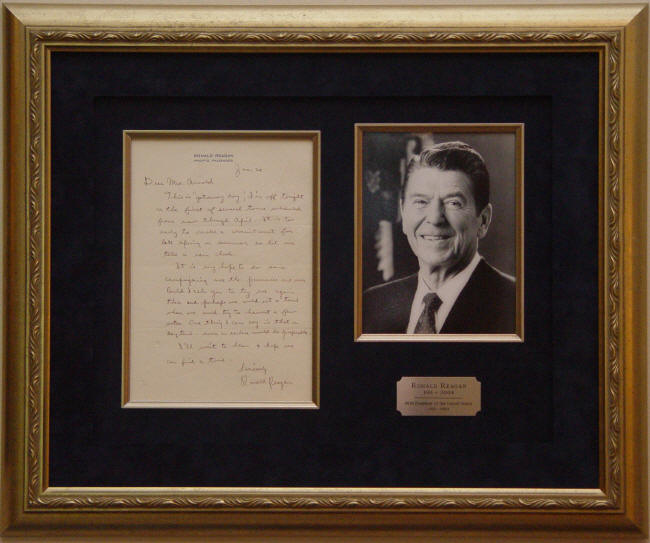 RONALD REAGAN
PACIFIC PALISADES
Jan. 26
Dear Mrs. Arnold
This is "getaway day" I'm off tonight
on the first of several tours scheduled
from now through April. It is too
early to make a commitment for
late spring or summer so let me
take a rain check.
It is my hope to do some
campaigning
Could I ask you to try me again
then and perhaps we could set a time
when we could try to
One thing I can say is that a
would be preferable
I'll wait to hear & hope we
can find a time.
Sincerely
Ronald Reagan
RONALD REAGAN
1911 - 2004
40th President of the United States
1981 - 1989